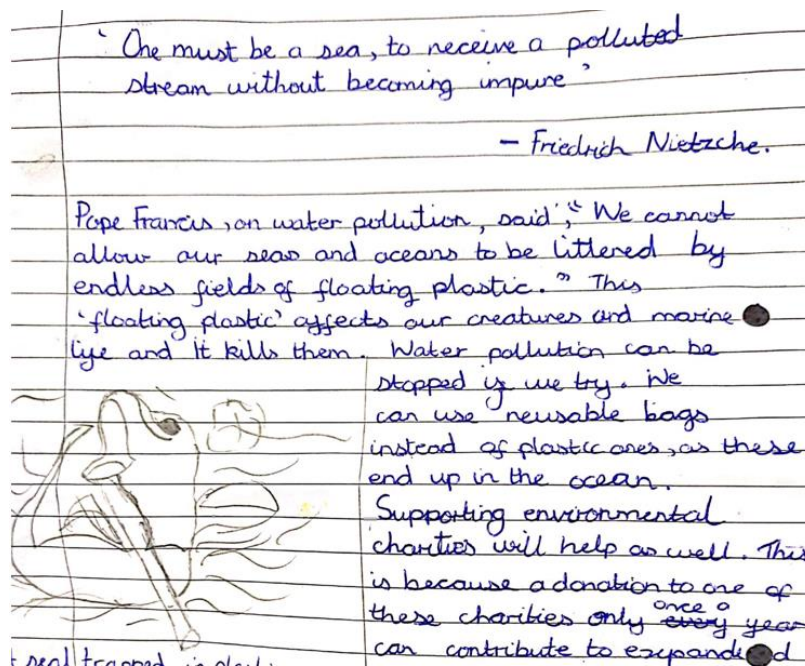 'One must be a sea, to receive a polluted
stream without becoming impure'
- Friedrich Nietzche.
Pope Francis, on water pollution, said, "We cannot
allow our seas and oceans to be littered by
endless fields of floating plastic." This
'floating plastic' affects our creatures and marine
life and it kills them. Water pollution can be
stopped if we try. We
can use reusable bags
instead of plastic ones, as these
end up in the ocean.
Supporting environmental
charities will help as well. This
is because a donation to one of
these charities only once a year
can contribute to expanded
seal trapped in